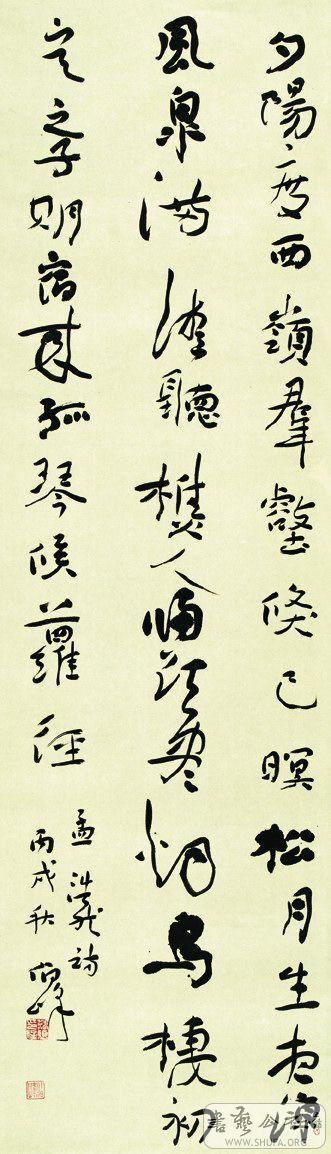 夕陽度西嶺羣壑倏已暝松月生夜凉
風泉滿清聽樵人歸欲盡烟鳥棲初
定之子期宿來孤琴候蘿徑
孟浩然詩
丙戌秋
書藝公社
WWW.SHUFA.ORG